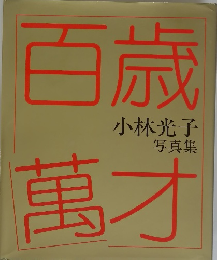 百歳
萬才
小林光子
写真集